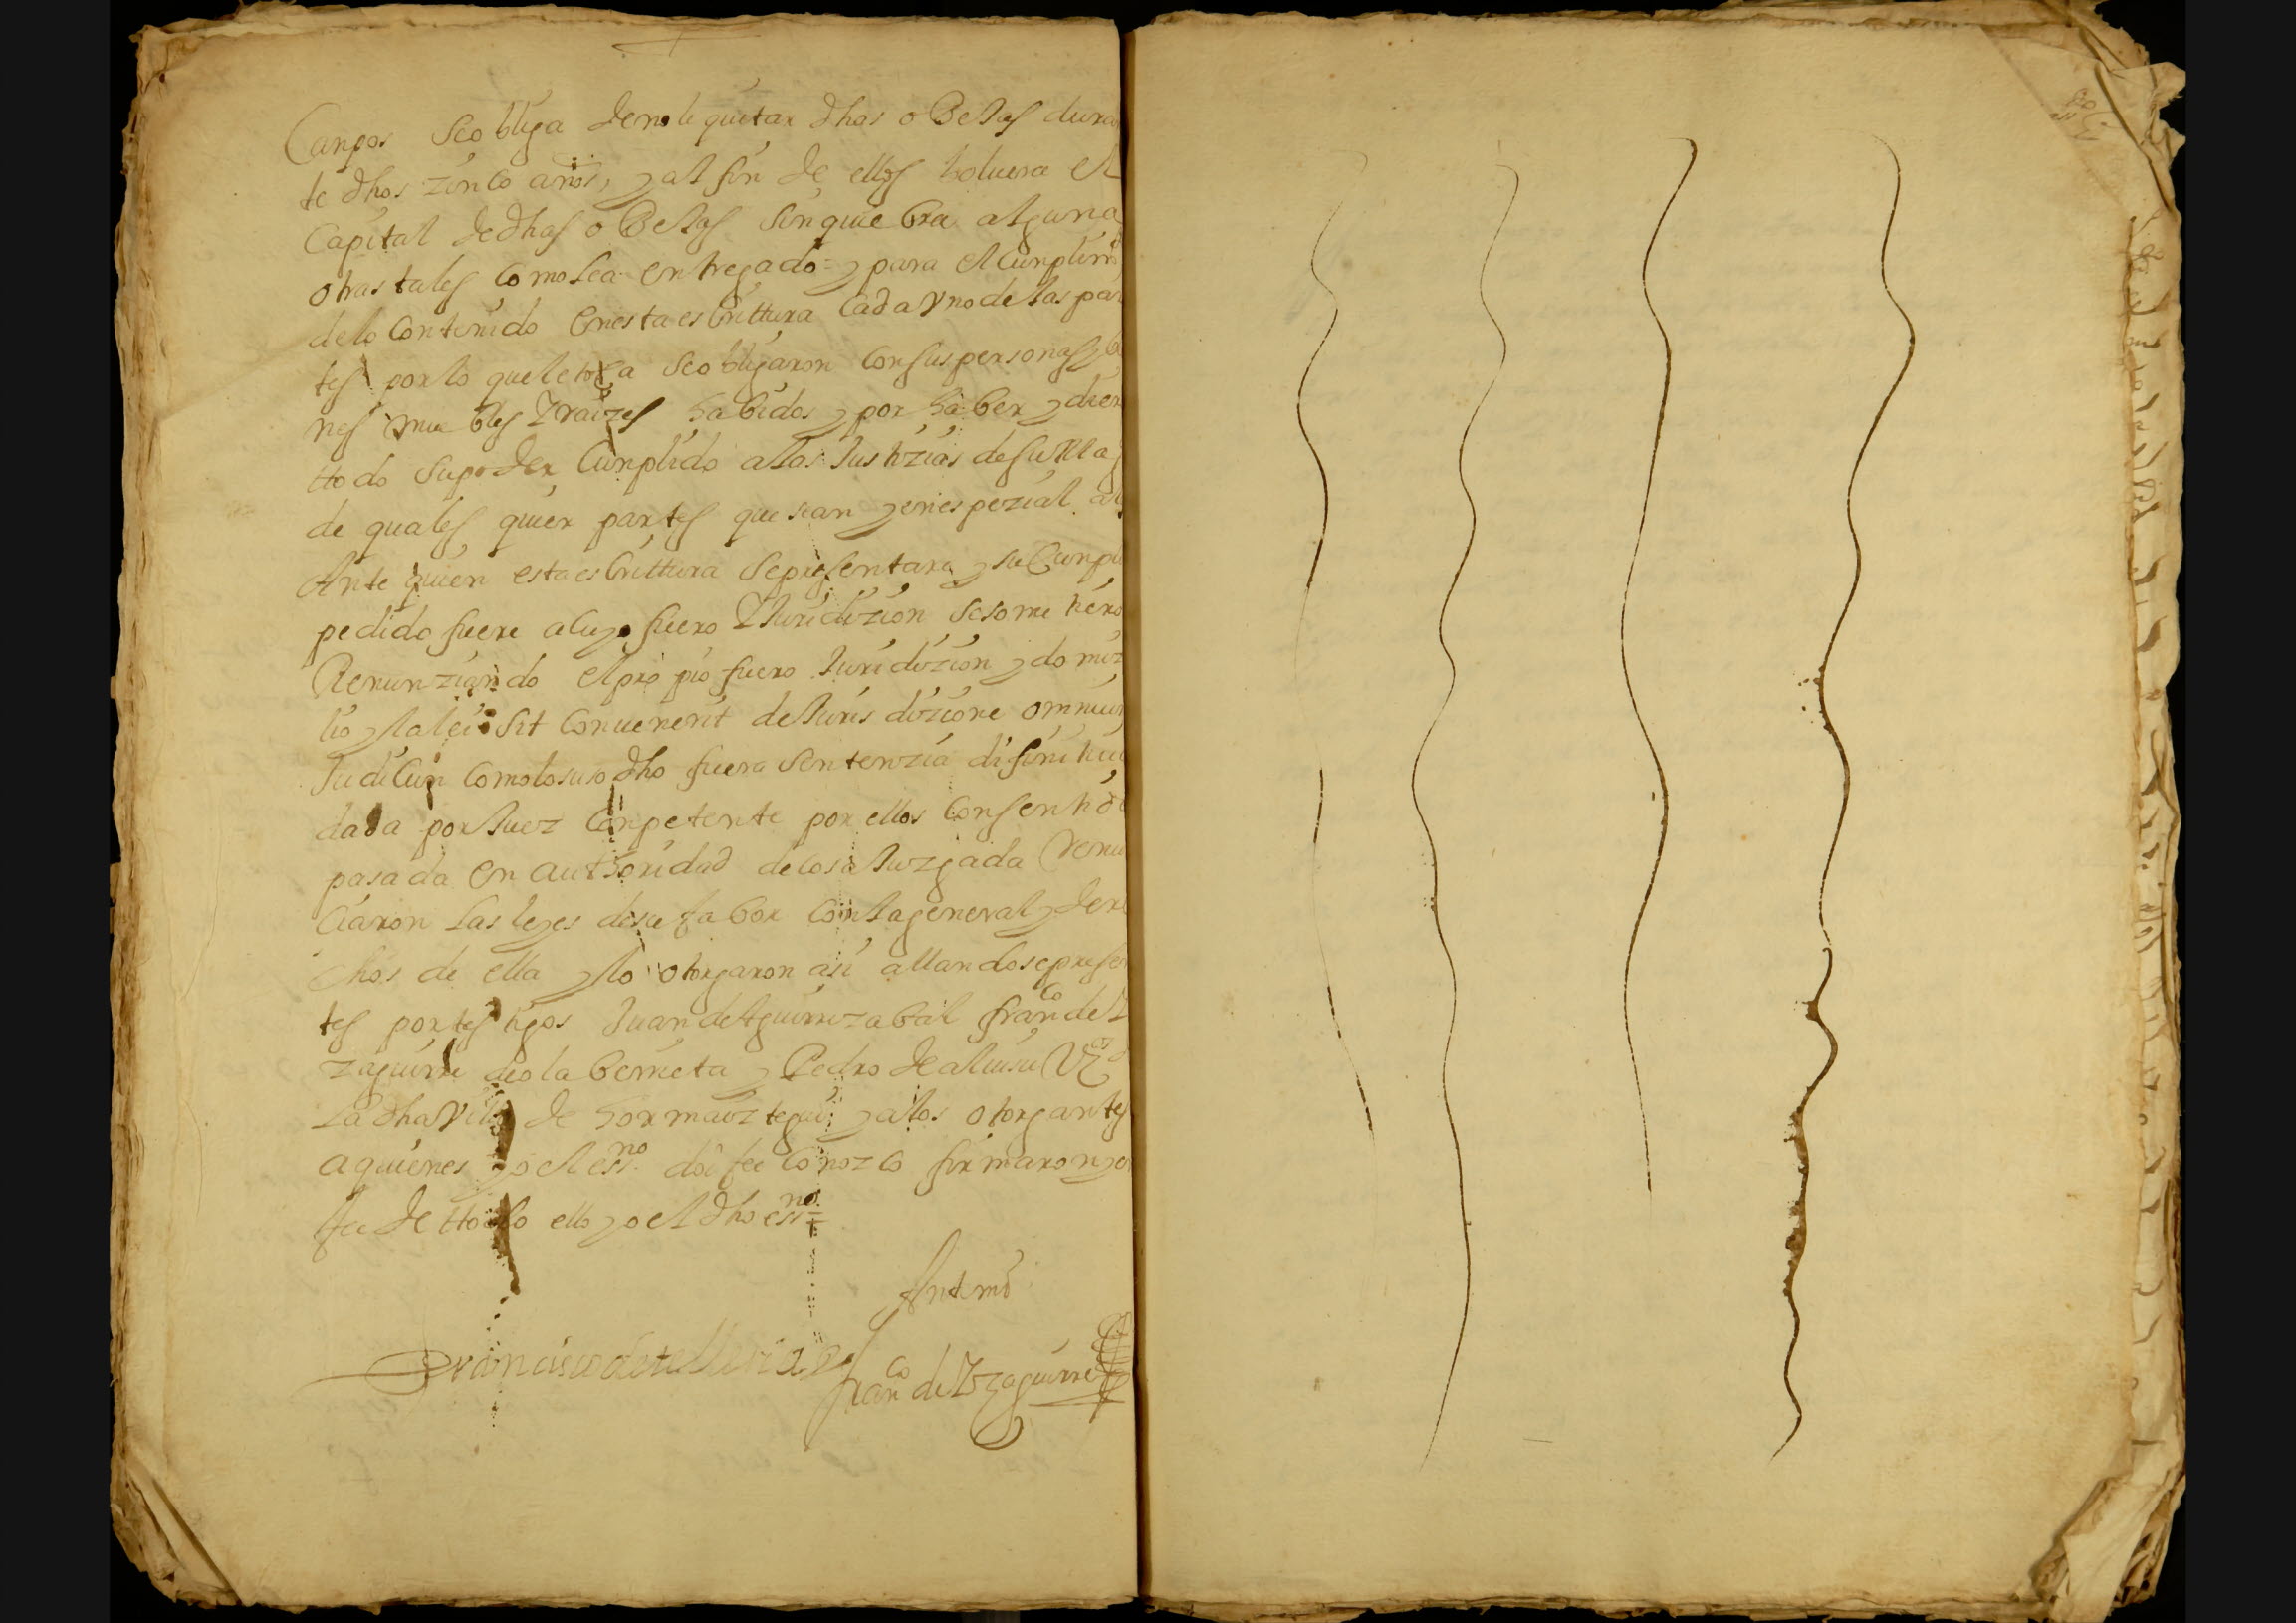 Canpos se obliga de no le quitar dhas obeJas duran
te dhos zinco años, y al fin de ellos bolvera el
Capital de dhas obeJas sin quiebra alguna
otras tales como se a entregado = y para el cunplimto
de lo contenido en esta escrittura Cada vno de las par
tes por lo que le toca se obligaron con sus personas y bie
nes muebles y raizes habidos y por haber y dieron
ttodo su poder Cunplido a las Justizias de su Mag
de quales quier partes que sean y en espezial a la
Ante quien esta escrittura se presentara y su Cunpli
pedido fuere a cuyo fuero y Juridizion se sometiero
Renunziando el propio fuero Juridizion y domizi
lio y la lei sit convenerit de Jurisdizione omniun
Judicun como lo suso dho fuera sentenzia difinitiva
dada por Juez Conpetente por ellos consentida
pasada en authoridad de cosa Juzgada Renun
ciaron las leyes de su fabor con la general y dere
chos de ella y lo otorgaron asi allandose presen
tes por testigos Juan de Aguirrezabal franco de Y
zaguirre de olaberrieta y Pedro de alvisu vzos
la dha villa de hormaiztegui y a los otorgantes
a quienes yo el essno doi fee Conozco firmaron y en
fee de ttodo ello yo el dho essno =
Ante mi
Francisco de telleria
franco de Yzaguirre